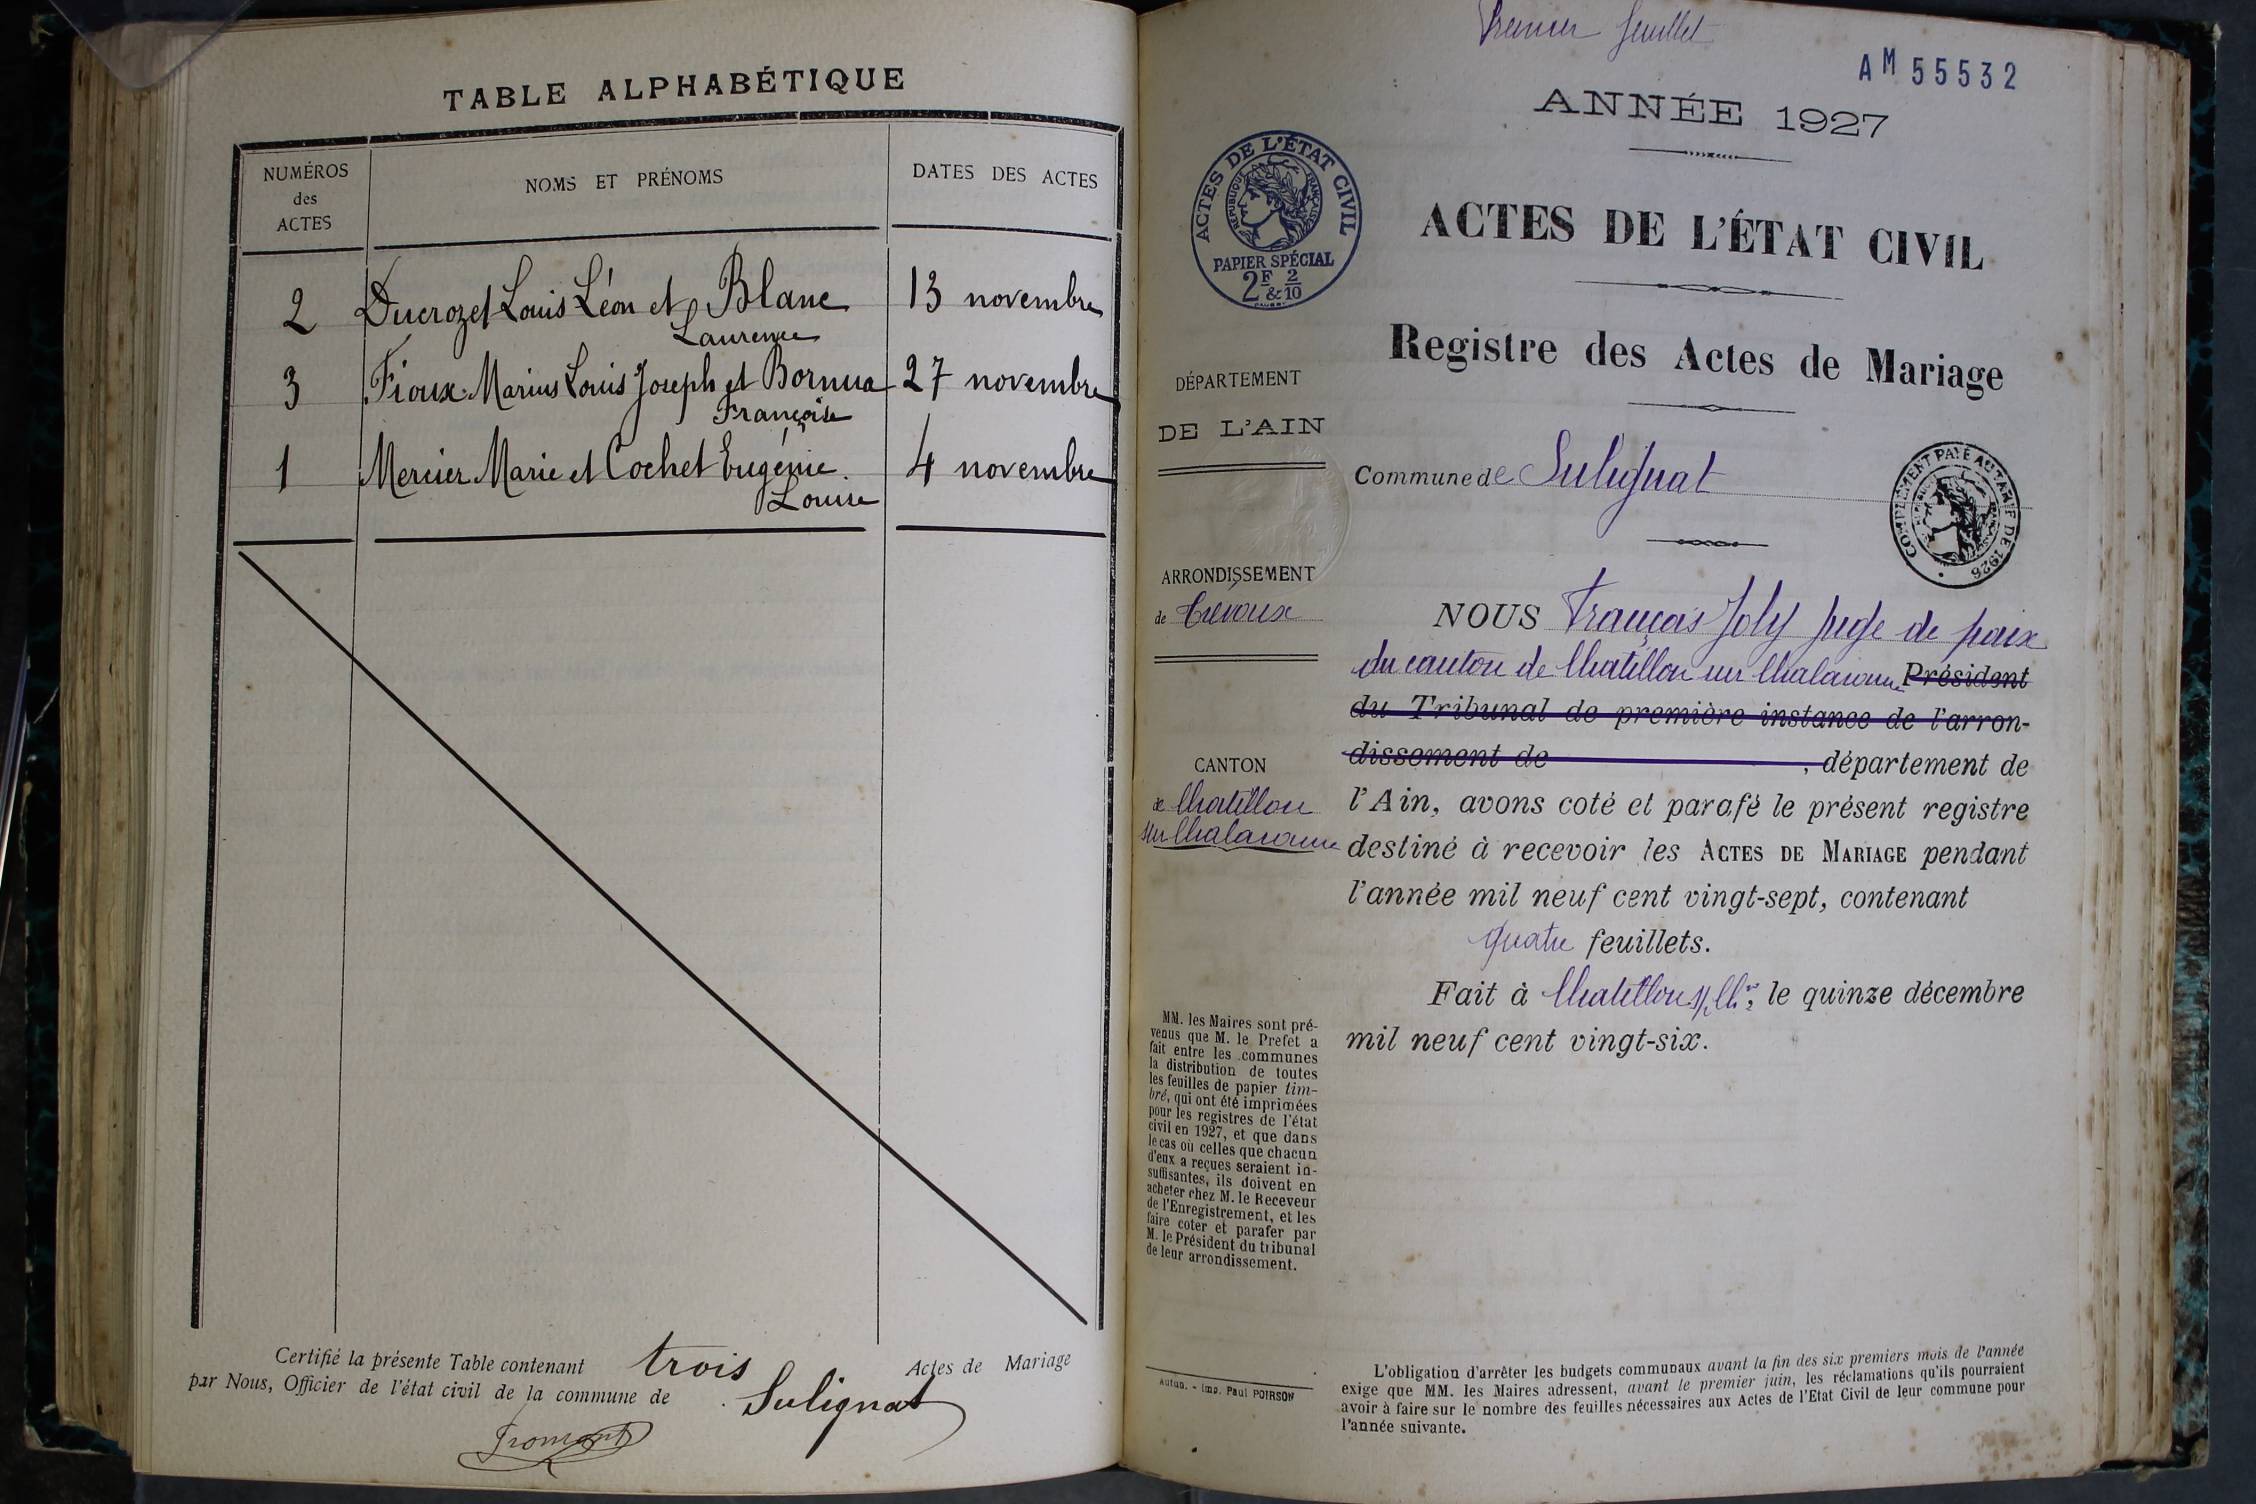 TABLE ALPHABÉTIQUE
NUMÉROS
des
ACTES
NOMS ET PRÉNOMS
DATES DES ACTES
2 Ducrozet Louis Léon et Blanc 13 novembre
Laurence
3 Fioux Marius Louis Joseph et Bornua 27 novembre
Françoise
1 Mercier Marie et Cochet Eugénie 4 novembre
Louise
Certifié la présente Table contenant trois Actes de Mariage
par Nous, Officier de l'état civil de la commune de Sulignat
Fromont
Premier feuillet
AM 55532
ANNÉE 1927
ACTES DE L'ÉTAT CIVIL
RÉPUBLIQUE FRANÇAISE
PAPIER SPÉCIAL
2F & 2/10
ACTES DE L'ÉTAT CIVIL
Registre des Actes de Mariage
DÉPARTEMENT
DE L'AIN
Commune de Sulignat
COMPLÉMENT PAYÉ AU TARIF DE 1926
ARRONDISSEMENT
de Trévoux
CANTON
de Chatillon
sur Chalaronne
NOUS François Joly Juge de paix
du canton de Chatillon sur Chalaronne Président
du Tribunal de première instance de l'arron-
dissement de , département de
l'Ain, avons coté et parafé le présent registre
destiné à recevoir les ACTES DE MARIAGE pendant
l'année mil neuf cent vingt-sept, contenant
quatre feuillets.
Fait à Chatillon s/ Chne, le quinze décembre
mil neuf cent vingt-six.
MM. les Maires sont pré-
venus que M. le Prefet a
fait entre les communes
la distribution de toutes
les feuilles de papier tim-
bré, qui ont été imprimées
pour les registres de l'état
civil en 1927, et que dans
le cas où celles que chacun
d'eux a reçues seraient in-
suffisantes, ils doivent en
acheter chez M. le Receveur
de l'Enregistrement, et les
faire coter et parafer par
M. le Président du tribunal
de leur arrondissement.
Autun. - Imp. Paul POIRSON
L'obligation d'arrêter les budgets communaux avant la fin des six premiers mois de l'année
exige que MM. les Maires adressent, avant le premier juin, les réclamations qu'ils pourraient
avoir à faire sur le nombre des feuilles nécessaires aux Actes de l'Etat Civil de leur commune pour
l'année suivante.